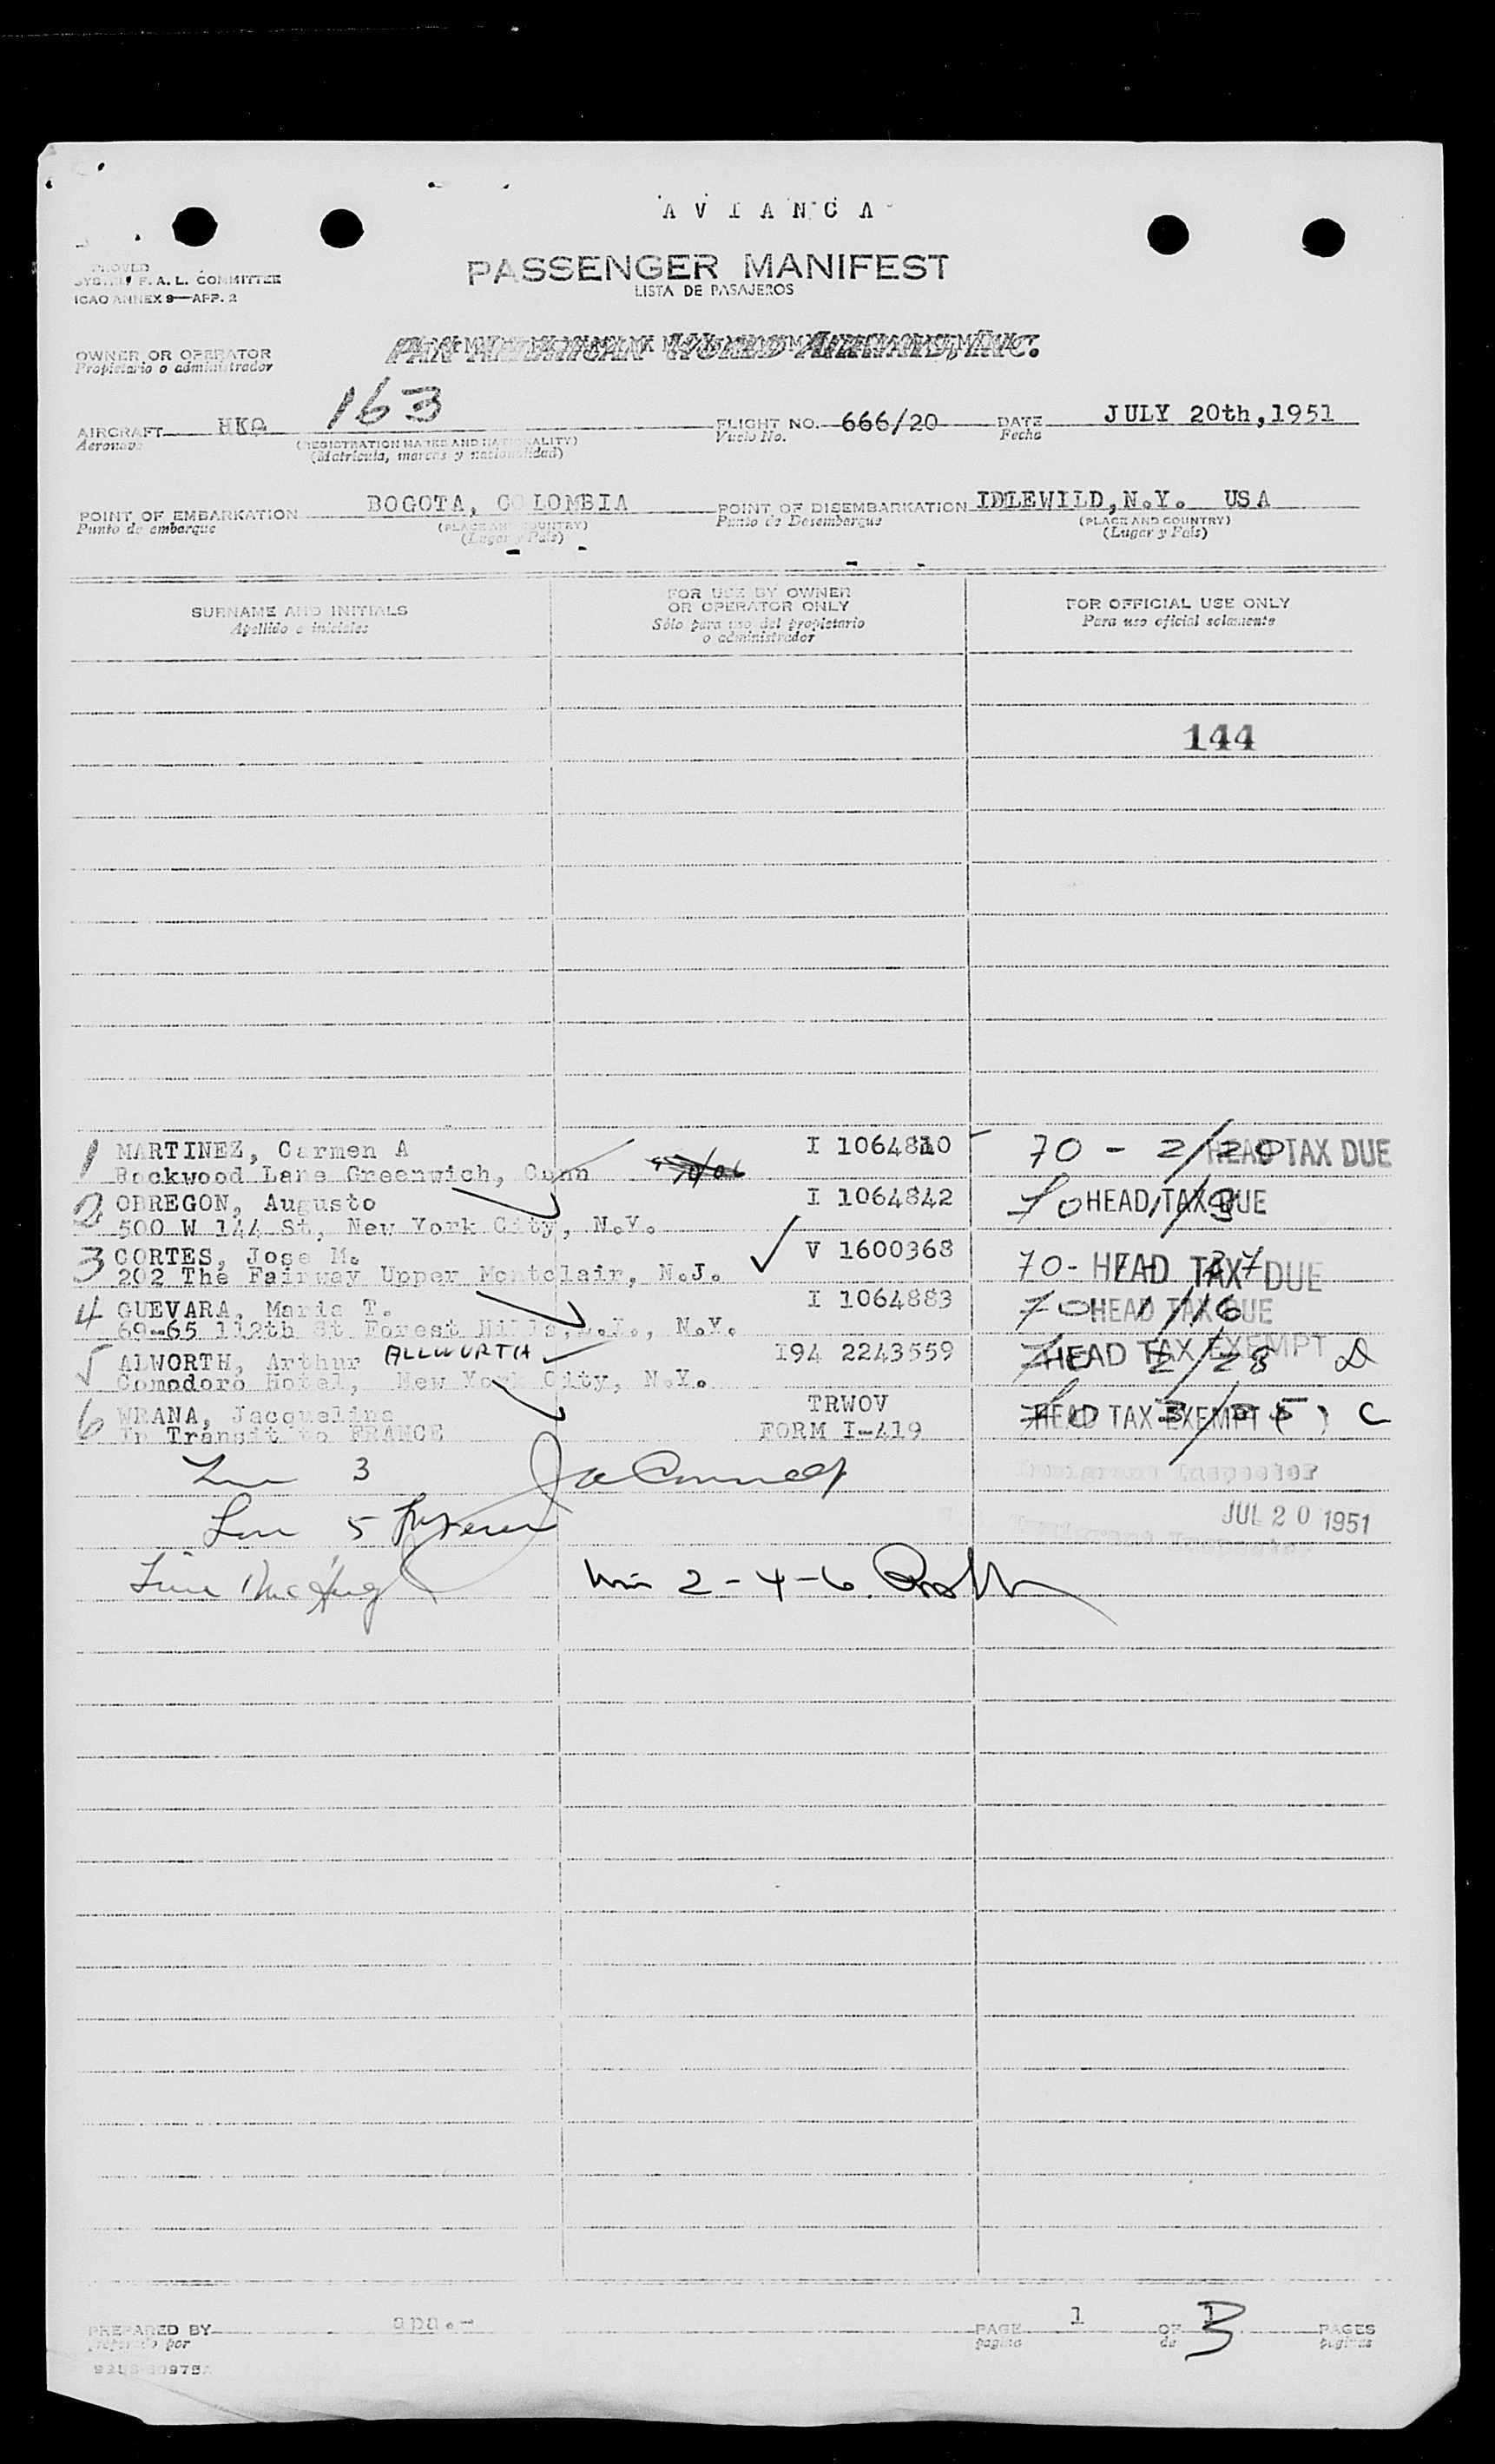 AVIANCA
PASSENGER MANIFEST
LISTA DE PASAJEROS
F. A. L. COMMITTEE
ICAO ANNEX 9—APP. 2
OWNER OR OPERATOR
Propietario o administrador
PAN AMERICAN WORLD AIRWAYS, INC.
AIRCRAFT 163 FLIGHT NO. 666/20 DATE JULY 20th,1951
Aeronave (REGISTRATION MARKS AND NATIONALITY) Vuelo No. Fecha
(Matrícula, marcas y nacionalidad)
POINT OF EMBARKATION BOGOTA, COLOMBIA POINT OF DISEMBARKATION IDLEWILD,N.Y. USA
Punto de embarque (PLACE AND COUNTRY) Punto de Desembarque (PLACE AND COUNTRY)
(Lugar y País) (Lugar y País)
SURNAME AND INITIALS FOR USE BY OWNER OR OPERATOR ONLY FOR OFFICIAL USE ONLY
Apellido e iniciales Sólo para uso del propietario o administrador Para uso oficial solamente
144
1 MARTINEZ, Carmen A I 1064810 70 - 2/20 HEAD TAX DUE
Rockwood Lane Greenwich, Conn
2 OBREGON, Augusto I 1064842 70 HEAD TAX DUE
500 W 144 St, New York City, N.Y.
3 CORTES, Jose M. V 1600368 70- HEAD TAX DUE
202 The Fairway Upper Montclair, N.J.
4 GUEVARA, Maria T. I 1064883 70 HEAD TAX DUE
69-65 112th St Forest Hills,L.I., N.Y.
5 ALWORTH, Arthur ALLWORTH I94 2243559 HEAD TAX EXEMPT 2/28
Comodoro Hotel, New York City, N.Y.
6 WRANA, Jacqueline TRWOV HEAD TAX EXEMPT C
In Transit to FRANCE FORM I-419
3
Immigrant Inspector
5
JUL 20 1951
Immigrant Inspector
2-4-6
PREPARED BY apa.- PAGE 1 OF 3 PAGES
preparado por página de páginas